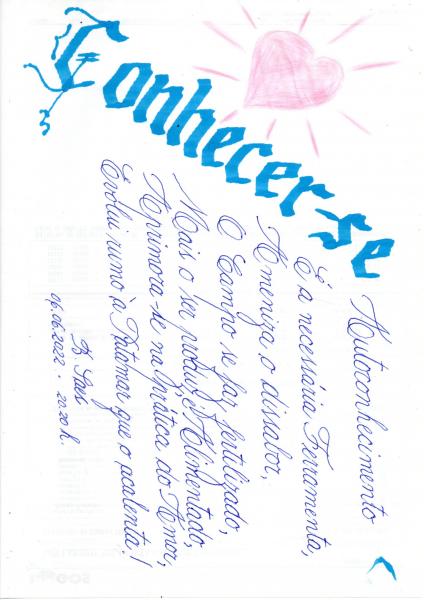 Conhecer-se
Autoconhecimento
É a necessária Ferramenta,
Ameniza o dissabor,
O Campo se faz fertilizado,
Mais o ser produz, é Alimentado,
Aprimora-se na prática do Amor,
Evolui rumo à Patamar que o acalenta!
06.06.2022. 20:20h.